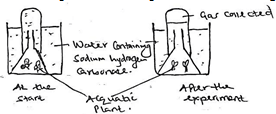 Gas collected
Water containing
Sodium hydrogen
Carbonate.
At the
Start
Aquatic
Plant.
After the
experiment